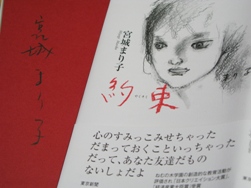 宮城まり子
宮城まり子
約束
心のすみっこみせちゃった
だまっておくこといっちゃった
だって、あなた友達だもの
ないしょだよ
東京新聞